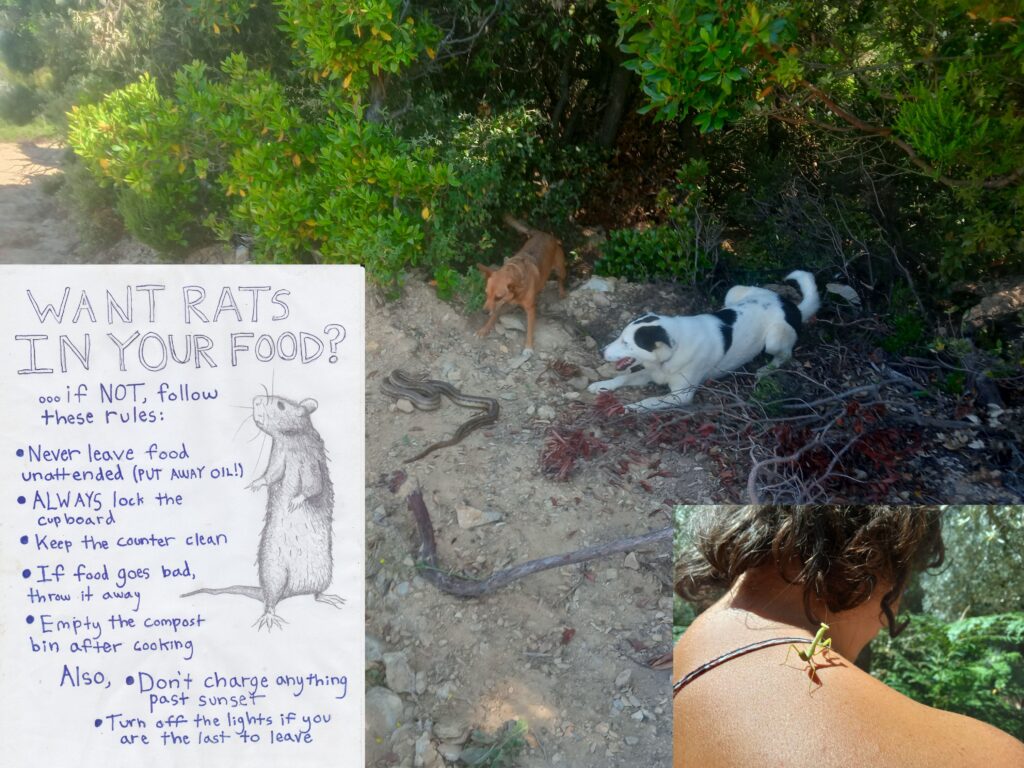 WANT RATS
IN YOUR FOOD?
...if NOT, follow
these rules:
• Never leave food
unattended (PUT AWAY OIL!)
• ALWAYS lock the
cupboard
• Keep the counter clean
• If food goes bad,
throw it away
• Empty the compost
bin after cooking
Also, • Don't charge anything
past sunset
• Turn off the lights if you
are the last to leave